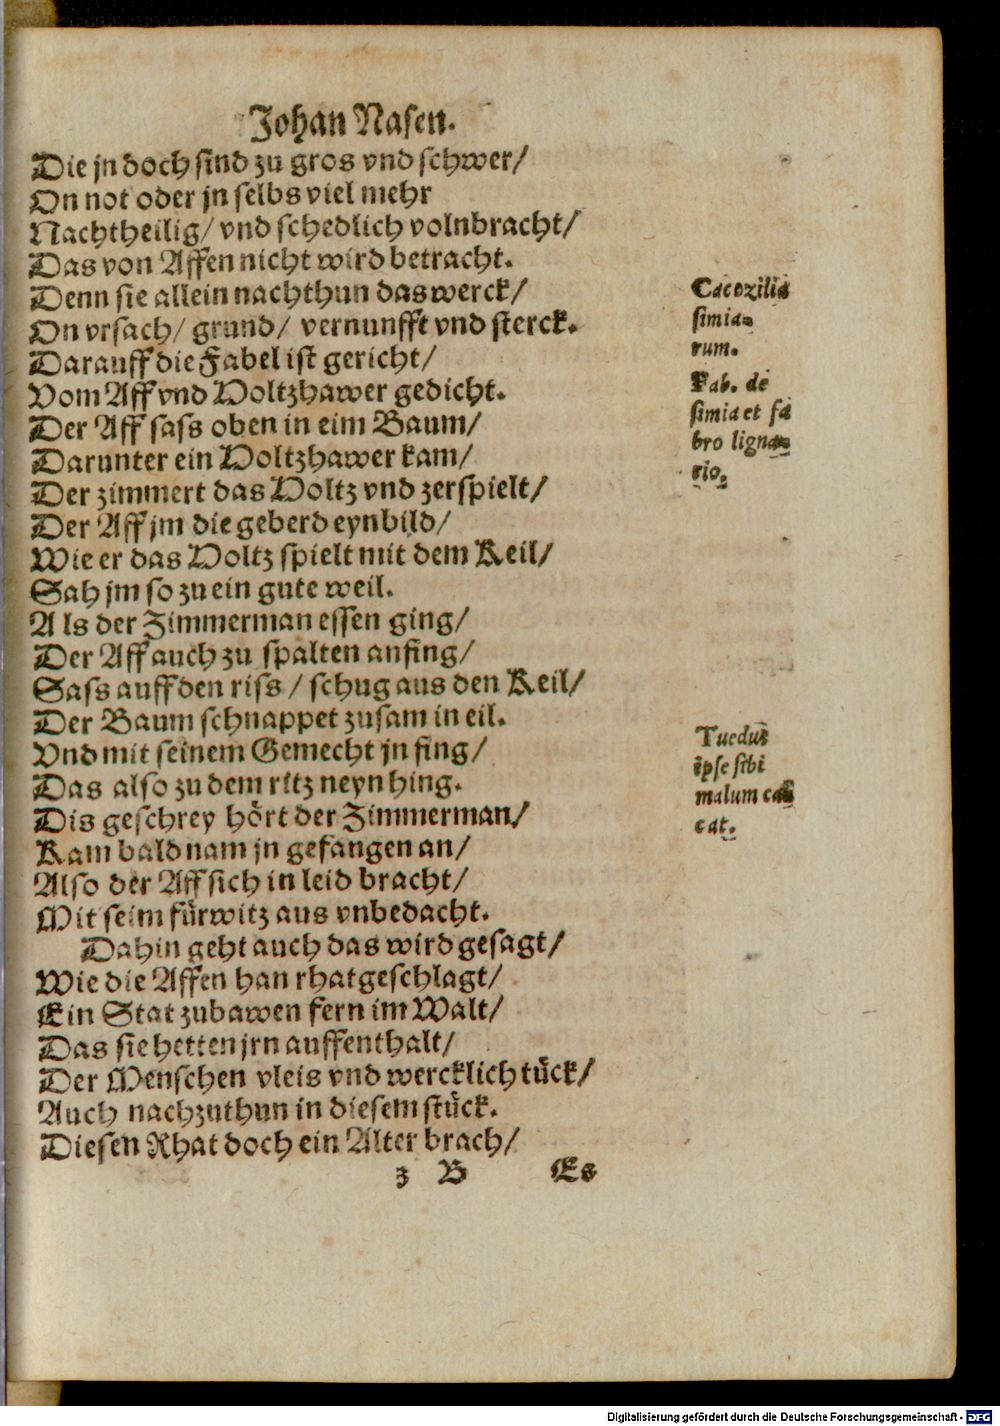 Johan Nasen.
Die jn doch sind zu gros vnd schwer/
On not oder jn selbs viel mehr
Nachtheilig/ vnd schedlich volnbracht/
Das von Affen nicht wird betracht.
Denn sie allein nachthun das werck/
On vrsach/ grund/ vernunfft vnd sterck.
Darauff die Fabel ist gericht/
Vom Aff vnd Holtzhawer gedicht.
Der Aff sass oben in eim Baum/
Darunter ein Holtzhawer kam/
Der zimmert das Holtz vnd zerspielt/
Der Aff jm die geberd eynbild/
Wie er das Holtz spielt mit dem Keil/
Sah jm so zu ein gute weil.
Als der Zimmerman essen ging/
Der Aff auch zu spalten anfing/
Sass auff den riss/ schug aus den Keil/
Der Baum schnappet zusam in eil.
Vnd mit seinem Gemecht jn fing/
Das also zu dem ritz neyn hing.
Dis geschrey hört der Zimmerman/
Kam bald nam jn gefangen an/
Also der Aff sich in leid bracht/
Mit seim fürwitz aus vnbedacht.
Dahin geht auch das wird gesagt/
Wie die Affen han rhatgeschlagt/
Ein Stat zubawen fern im Walt/
Das sie hetten jrn auffenthalt/
Der Menschen vleis vnd wercklich tück/
Auch nachzuthun in diesem stück.
Diesen Rhat doch ein Alter brach/
z B Es
Cacozilia
simia-
rum.
Fab. de
simia et fa
bro ligna-
rio.
ipse sibi
malum
cat.
Digitalisierung gefördert durch die Deutsche Forschungsgemeinschaft - DFG